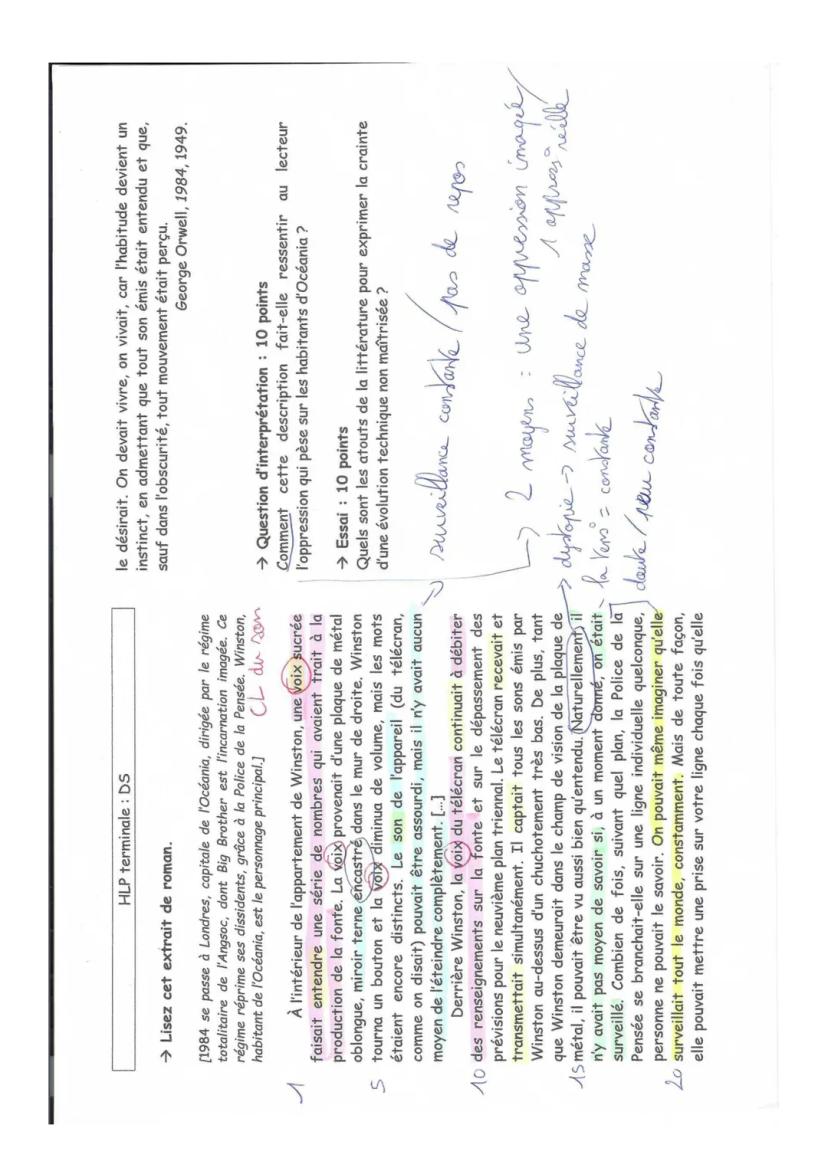 HLP terminale : DS
→ Lisez cet extrait de roman.
[1984 se passe à Londres, capitale de l'Océania, dirigée par le régime
totalitaire de l'Angsoc, dont Big Brother est l'incarnation imagée. Ce
régime réprime ses dissidents, grâce à la Police de la Pensée. Winston,
habitant de l'Océania, est le personnage principal.]
CL du son
1
À l'intérieur de l'appartement de Winston, une voix sucrée
faisait entendre une série de nombres qui avaient trait à la
production de la fonte. La voix provenait d'une plaque de métal
oblongue, miroir terne encastré dans le mur de droite. Winston
5 tourna un bouton et la voix diminua de volume, mais les mots
étaient encore distincts. Le son de l'appareil (du télécran,
comme on disait) pouvait être assourdi, mais il n'y avait aucun
moyen de l'éteindre complètement. [...]
Derrière Winston, la voix du télécran continuait à débiter
10 des renseignements sur la fonte et sur le dépassement des
prévisions pour le neuvième plan triennal. Le télécran recevait et
transmettait simultanément. Il captait tous les sons émis par
Winston au-dessus d'un chuchotement très bas. De plus, tant
que Winston demeurait dans le champ de vision de la plaque de
15 métal, il pouvait être vu aussi bien qu'entendu. Naturellement, il
n'y avait pas moyen de savoir si, à un moment donné, on était
surveillé. Combien de fois, suivant quel plan, la Police de la
Pensée se branchait-elle sur une ligne individuelle quelconque,
personne ne pouvait le savoir. On pouvait même imaginer qu'elle
20 surveillait tout le monde, constamment. Mais de toute façon,
elle pouvait mettre une prise sur votre ligne chaque fois qu'elle
le désirait. On devait vivre, on vivait, car l'habitude devient un
instinct, en admettant que tout son émis était entendu et que,
sauf dans l'obscurité, tout mouvement était perçu.
George Orwell, 1984, 1949.
→ Question d'interprétation : 10 points
Comment cette description fait-elle ressentir au lecteur
l'oppression qui pèse sur les habitants d'Océania ?
→ Essai : 10 points
Quels sont les atouts de la littérature pour exprimer la crainte
d'une évolution technique non maîtrisée ?
surveillance constante / pas de repos
→ 2 moyens : une oppression imagée /
1 oppress° réelle
→ dystopie → surveillance de masse
= constante
doute / peur constante